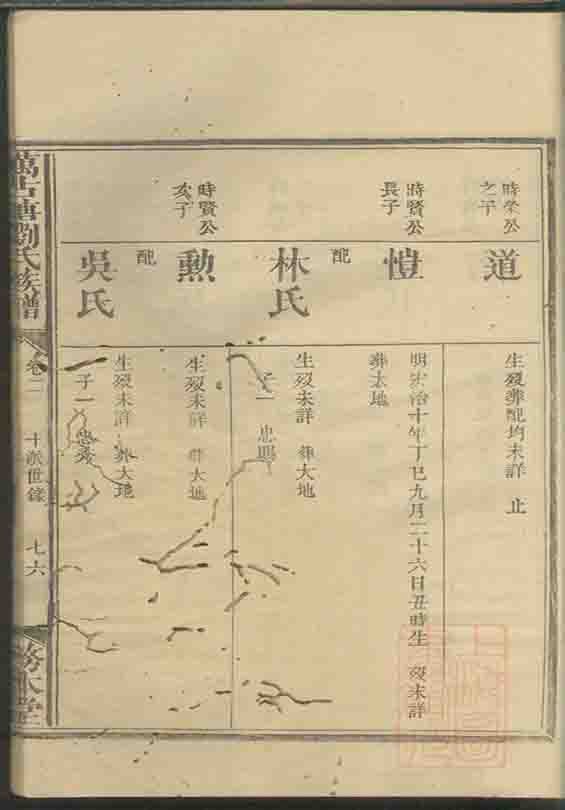 時榮公
之子
道
生歿葬配均未詳 止
時賢公
長子
愷
明宏治十年丁巳九月二十六日丑時生 歿未詳
葬大地
配
林氏
生歿未詳 葬大地
子一 忠
時賢公
次子
勲
生歿未詳 葬大地
配
吳氏
生歿未詳 葬大地
子一
劉氏族譜
卷二
十派世錄
七六
務本堂